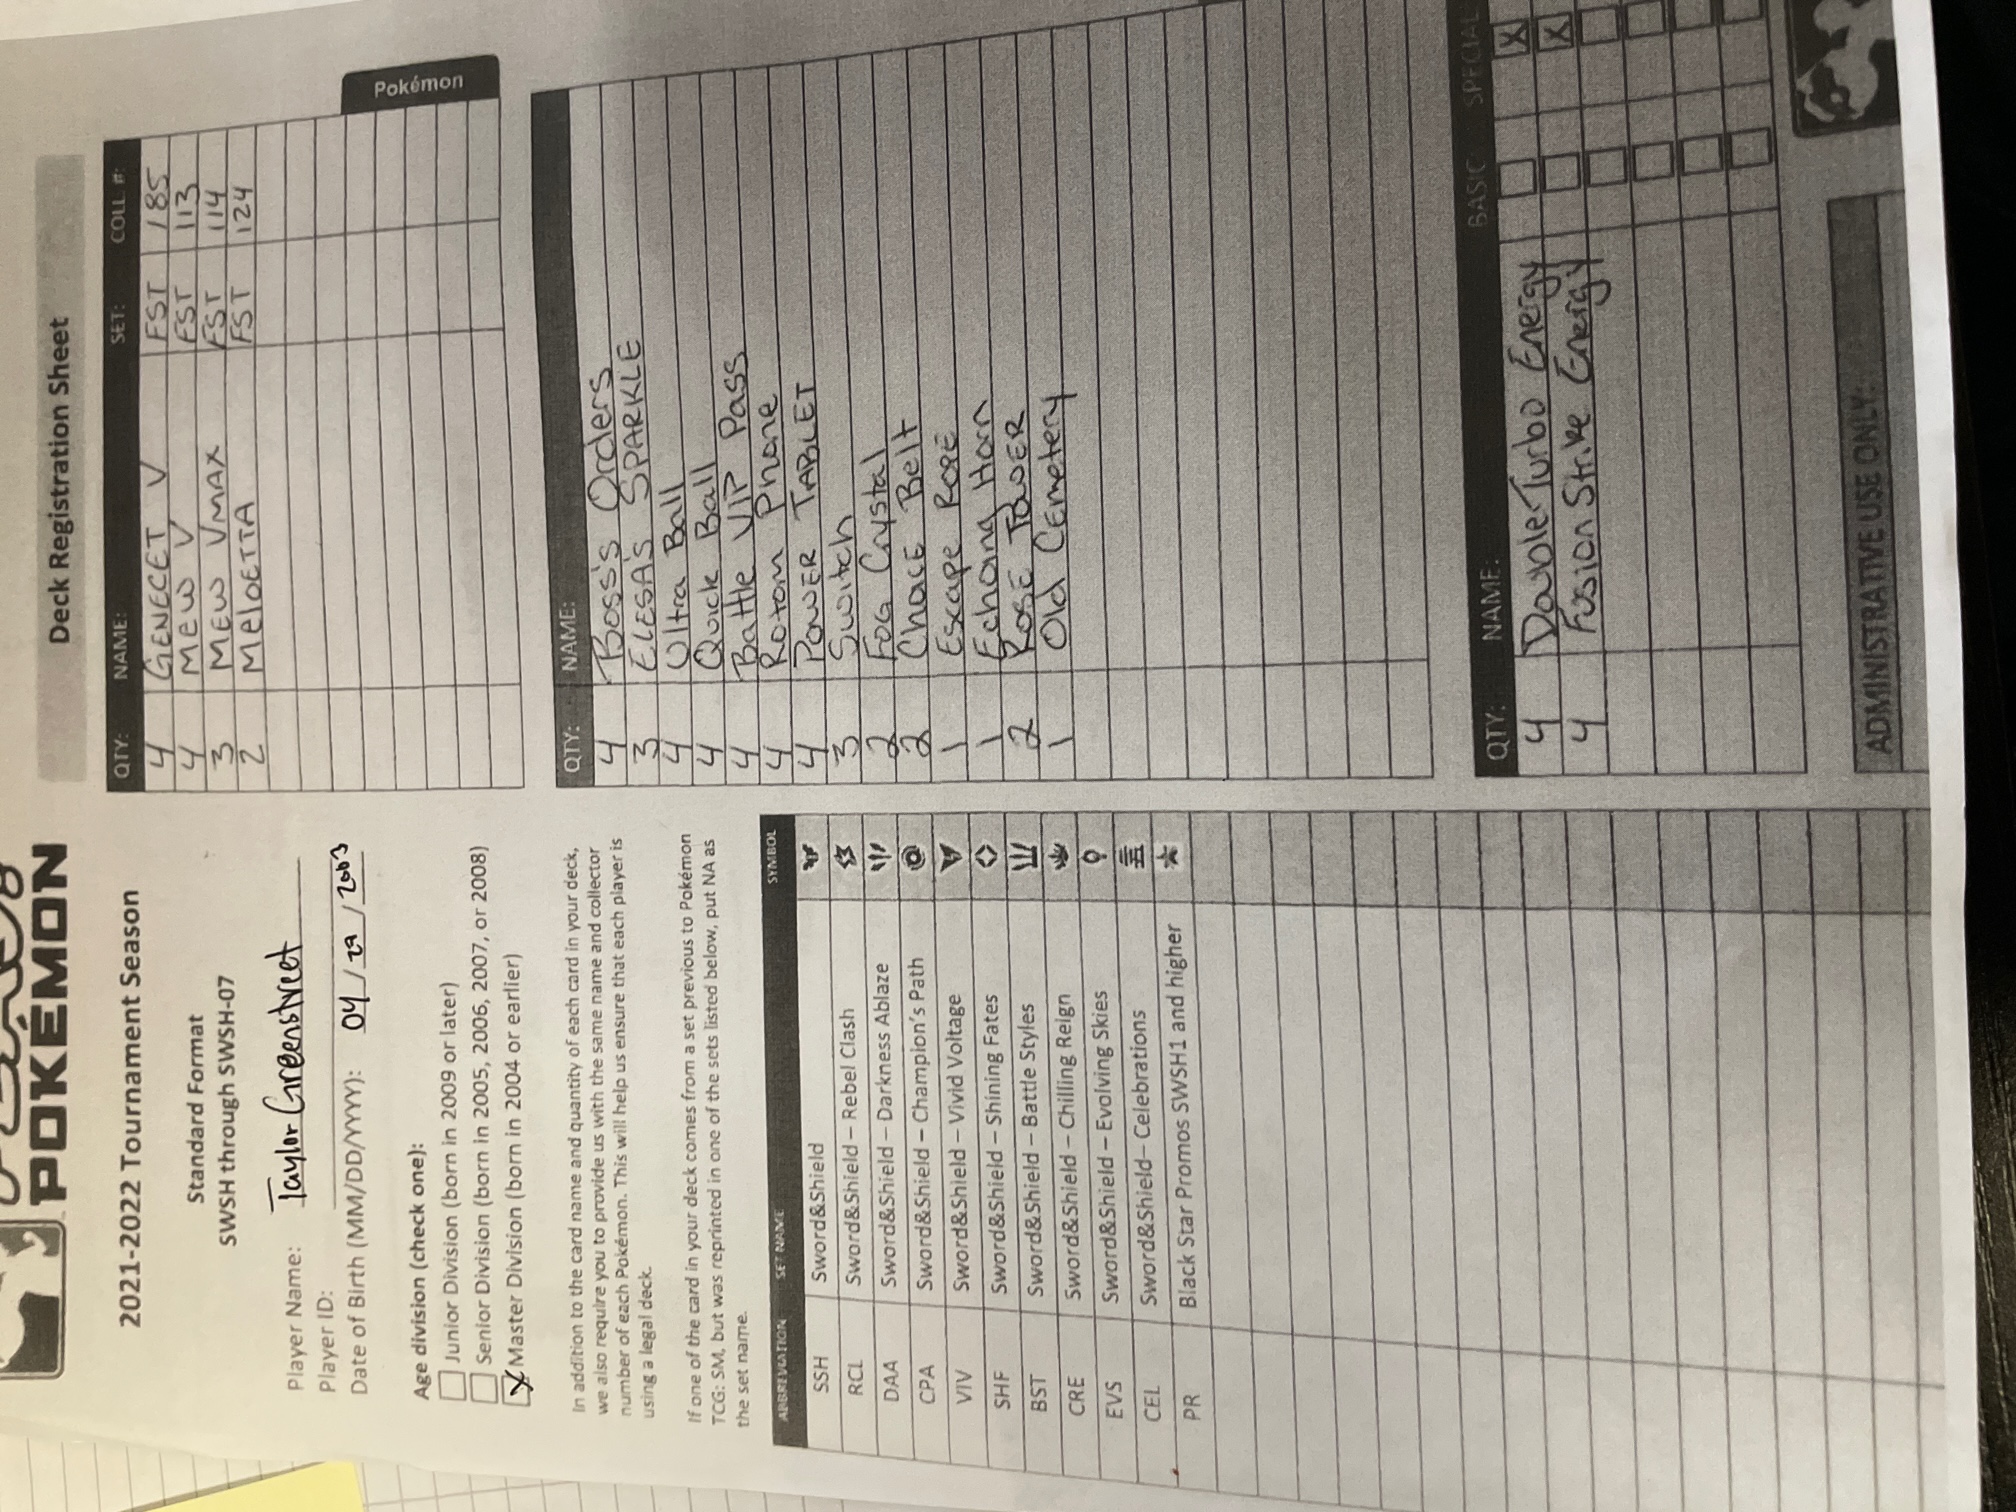 PLAY!
POKÉMON
2021-2022 Tournament Season
Standard Format
SWSH through SWSH-07
Player Name: Taylor Greenstreet
Player ID:
Date of Birth (MM/DD/YYYY): 04 / 29 / 2003
Age division (check one):
Junior Division (born in 2009 or later)
Senior Division (born in 2005, 2006, 2007, or 2008)
X Master Division (born in 2004 or earlier)
In addition to the card name and quantity of each card in your deck,
we also require you to provide us with the same name and collector
number of each Pokémon. This will help us ensure that each player is
using a legal deck.
If one of the card in your deck comes from a set previous to Pokémon
TCG: SM, but was reprinted in one of the sets listed below, put NA as
the set name.
ABBREVIATION SET NAME SYMBOL
SSH Sword&Shield
RCL Sword&Shield – Rebel Clash
DAA Sword&Shield – Darkness Ablaze
CPA Sword&Shield – Champion's Path
VIV Sword&Shield – Vivid Voltage
SHF Sword&Shield – Shining Fates
BST Sword&Shield – Battle Styles
CRE Sword&Shield – Chilling Reign
EVS Sword&Shield – Evolving Skies
CEL Sword&Shield– Celebrations
PR Black Star Promos SWSH1 and higher
Deck Registration Sheet
QTY: NAME: SET: COLL #:
4 GENECET V FST 185
4 MEW V FST 113
3 MEW VMAX FST 114
2 MELOETTA FST 124
Pokémon
QTY: NAME:
4 Boss's Orders
3 ELESA'S SPARKLE
4 Ultra Ball
4 Quick Ball
4 Battle VIP Pass
4 Rotom Phone
4 POWER TABLET
3 Switch
2 FOG Crystal
2 CHOICE Belt
1 Escape ROPE
1 Echoing Horn
2 ROSE TOWER
1 Old CEmetery
QTY: NAME: BASIC SPECIAL
4 Double Turbo Energy X
4 Fusion Strike Energy X
ADMINISTRATIVE USE ONLY: